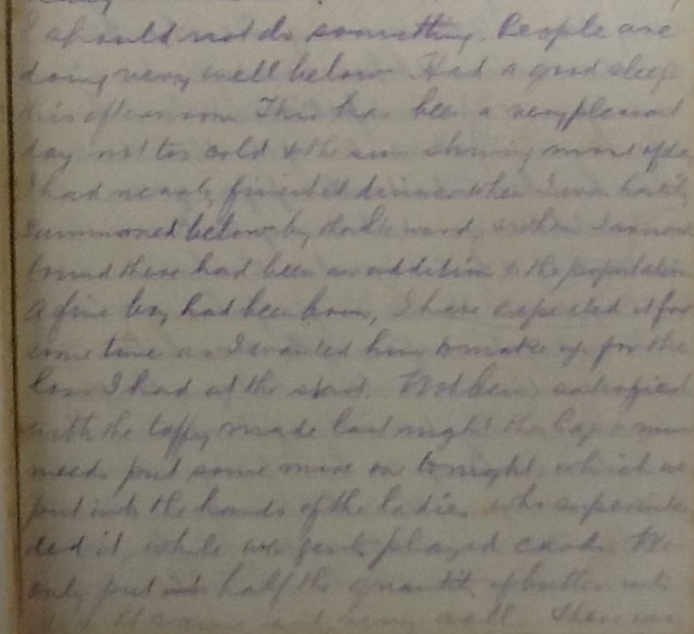 I should not do something. People are
doing very well below. Had a good sleep
this afternoon. This has been a very pleasant
day not too cold & the sun shining most of
I had nearly finished dinner when I was
summoned below by the Steward, & when I
found there had been an addition to the population
A fine boy had been born, I have expected it for
some time as I wanted him to make up for the
loss I had at the start. Not being satisfied
with the toffy made last night the Cap
needs put some more on tonight, which we
put into the hands of the ladies who
ded it, while we gents played cards. We
only put in half the quantity of butter
well. There